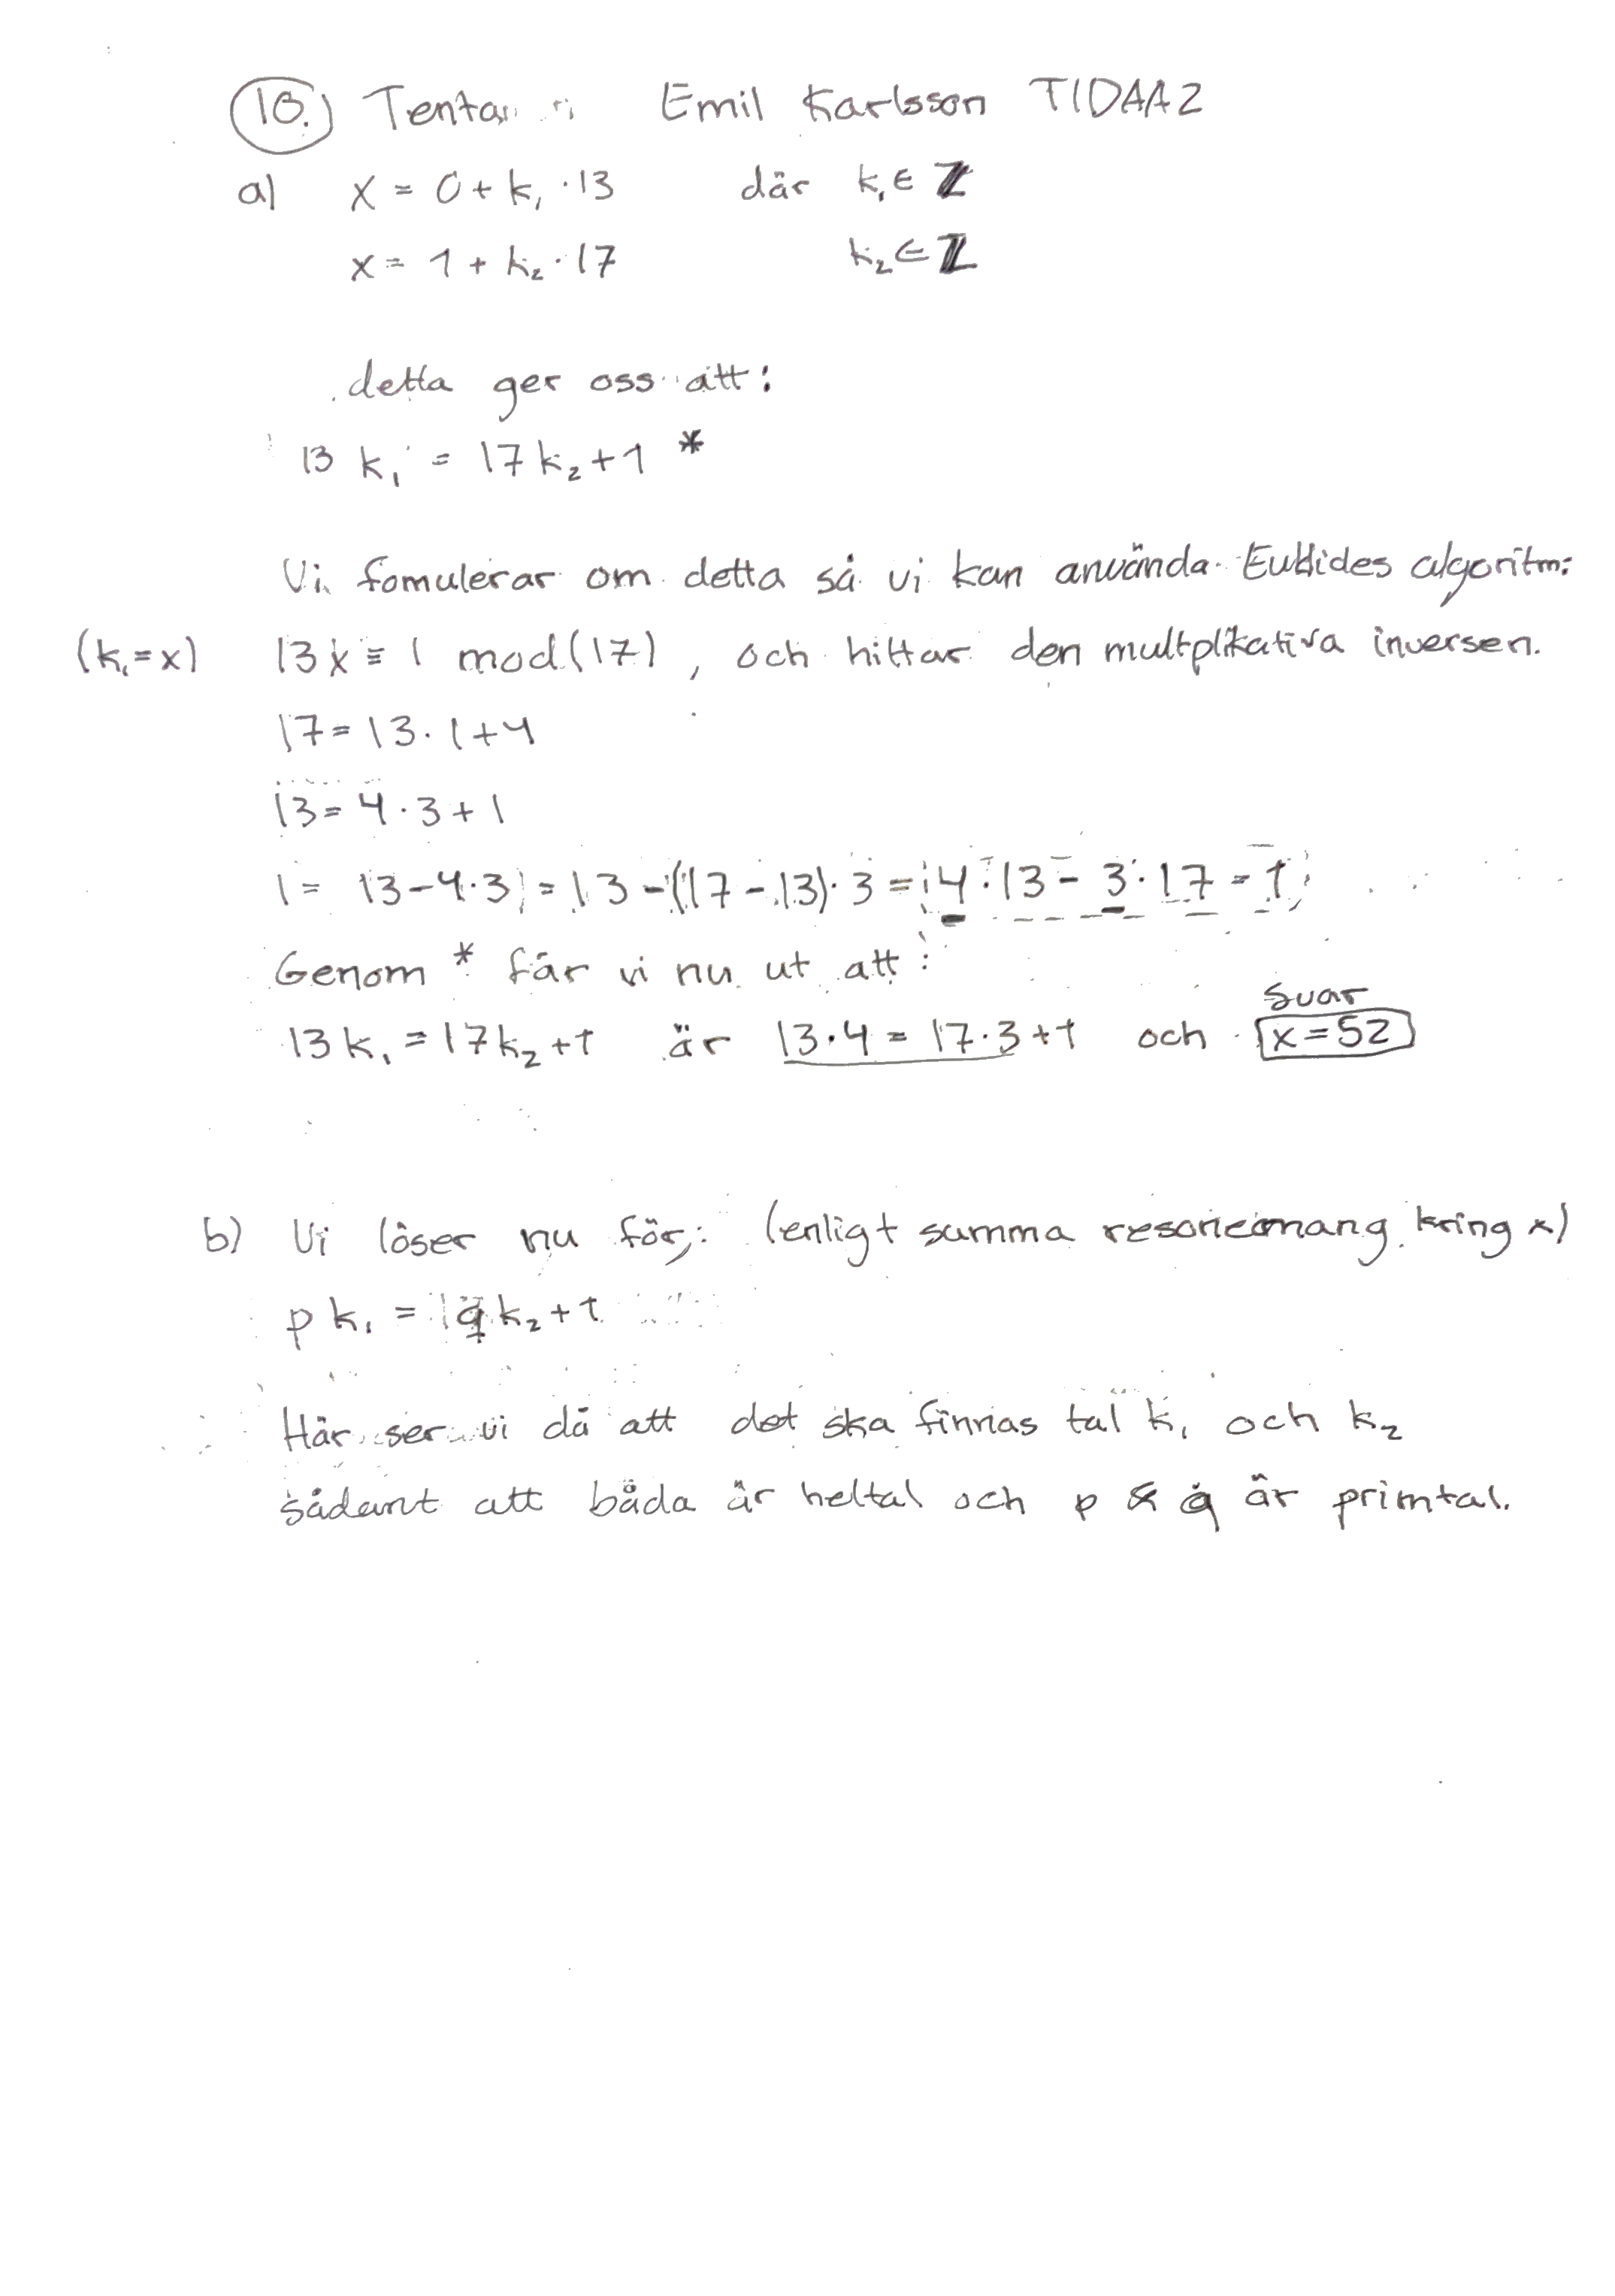 10. Tenta Emil Karlsson TIDAA2
a) x = 0 + k₁ · 13 där k₁ ∈ ℤ
x = 1 + k₂ · 17 k₂ ∈ ℤ
detta ger oss att:
13 k₁ = 17 k₂ + 1 *
Vi fomulerar om detta så vi kan använda Euklides algoritm:
(k₁=x) 13x ≡ 1 mod(17), och hittar den multplikativa inversen.
17 = 13 · 1 + 4
13 = 4 · 3 + 1
1 = 13 - 4 · 3 = 13 - (17 - 13) · 3 = 4 · 13 - 3 · 17 = 1
Genom * får vi nu ut att:
Svar
13 k₁ = 17 k₂ + 1 är 13 · 4 = 17 · 3 + 1 och x = 52
b) Vi löser nu för: (enligt summa kring x)
p k₁ = q k₂ + 1
Här ser vi då att det ska finnas tal k₁ och k₂
sådant att båda är heltal och p & q är primtal.